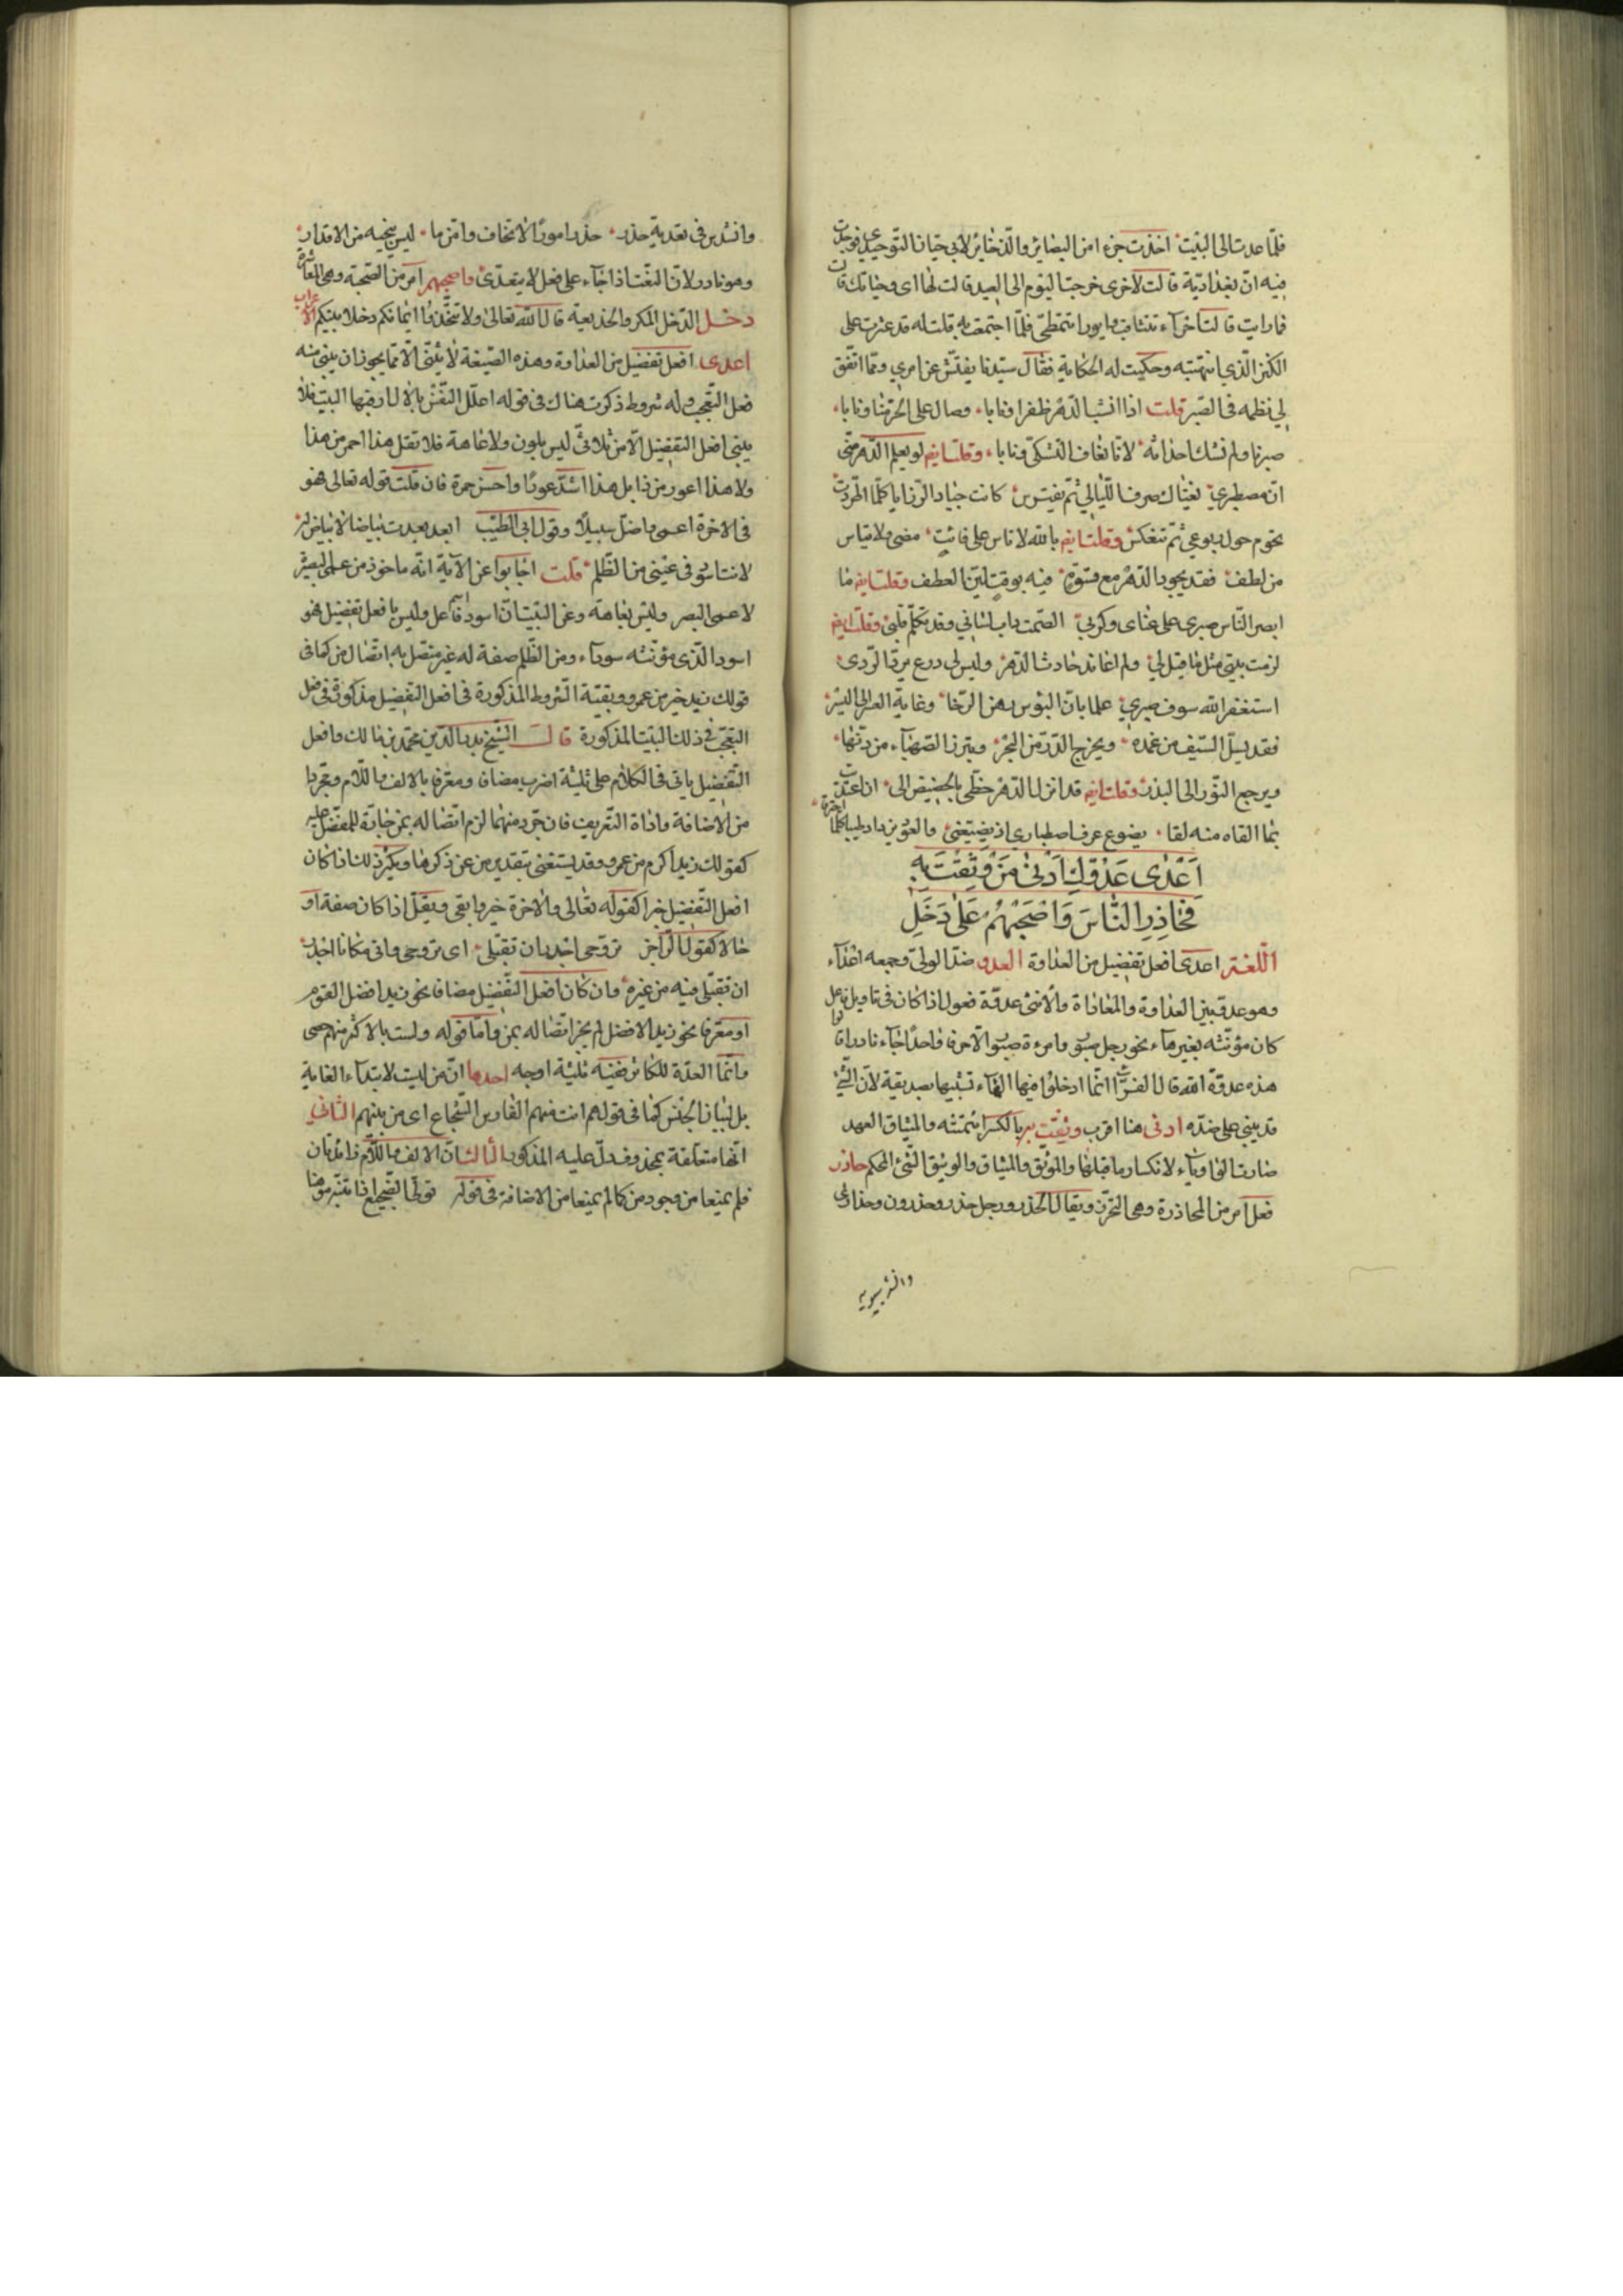 فلمّا عدت الى البيت اخذت جزءا من البصائر والذخائر لابي حيان التوحيدي فوجدت
فيه ان بغدادية قالت لأخرى خرجت اليوم الى العيد قالت لها اى وحياتك قالت
فما رايت قالت احراء تتثاقب وايورا تتمطى فلما اجتمعت به قلت له قد عثرت على
الكنز الذي انتهبته وحكيت له الحكاية فقال سيدنا يفتش عن امري ومما اتفق
لي نظمه فى الصبر قلت اذا انشب الدهر ظفرا ونابا وصال على الحر منا ونابا
صبرنا ولم نشك احداثه لانا نعاف التشكى ونابا وقلت ايض لو يعلم الدهر منى
ان مصطبري يغتال صرف الليالي ثم يفترس كانت جياد الرزايا كلما اطردت
تحوم حول ربوعي ثم تنعكس وقلت ايض بالله لا تاس على فائت مضى ولا تياس
من لطف فقد يجود الدهر مع فيه بوقت لين العطف وقلت ايض ما
ابصر الناس صبرى على عناى وكربي الصمت داب لساني وقد تكلم قلبى وقلت ايض
لزمت بيتى مثل ما قيل لي ولم اعاند حادث الدهر وليس لي درع يرد الردى
استغفر الله سوى صبري علما بان البوس رهن الرخا وغاية العسر الى اليسر
فقد يسل السيف من غمده ويخرج الدر من البحر وتبرز الصهباء من دنها
ويرجع النور الى البدر وقلت ايض قد انزل الدهر حظى بالحضيض الى ان اعتدت
بما القاه منه لقا يضوع عرف اصطباري اذ يضيعنى والعود يزداد طيبا كلما احترقا
اَعْدٰى عَدُوِّكَ اَدْنٰى مَنْ وَثِقْتَ بِهِ
فَحَاذِرِ النَّاسَ وَاصْحَبْهُمْ عَلٰى دَخَلِ
اللغة اعدى افعل تفضيل من العداوة العدو ضد الولي وجمعه اعداء
وهو عدو بين العداوة والمعاداة والانثى عدوة فعول اذا كان فى تاويل فاعل
كان مؤنثه بغير هاء نحو رجل صبور وامرءة صبور الا حرفا واحدا جاء نادرا قالوا
هذه عدوة الله قال الفراء انما ادخلوا فيها الهاء تشبيها بصديقة لان الشئ
قد يبنى على ضده ادنى هنا اقرب وثقت به بالكسر ائتمنته والميثاق العهد
صارت الواو ياء لانكسار ما قبلها والموثق والميثاق والوثيق الشئ المحكم حاذر
فعل امر من المحاذرة وهى التحرز ويقال الحذر ورجل حذر وحذرون وحذارى
وانشد سيبويه
وانشد س فى تعدية حذر حذر امورا لا تخاف وامن ما ليس ينجيه من الاقدار
وهو نادر لان النعت اذا جاء على فعل لا يتعدى واصحبهم امر من الصحبة وهى المعاشرة
دخل الدخل المكر والخديعة قال الله تعالى ولا تتخذوا ايمانكم دخلا بينكم الاعراب
اعدى افعل تفضيل من العداوة وهذه الصيغة لا تبنى الا مما يجوز ان يبنى منه
فعل التعجب وله شروط ذكرت هناك فى قوله اعلل النفس بالامال ارقبها البيت فلا
يبنى افعل التفضيل الا من ثلاثى ليس بلون ولا عاهة فلا تقل هذا احمر من هذا
ولا هذا اعور من ذا بل هذا اشد عورا واحسن حمرة فان قلت قوله تعالى فهو
فى الاخرة اعمى واضل سبيلا وقول ابى الطيب ابعد بعدت بياضا لا بياض له
لانت اسود فى عينى من الظلم قلت اجابوا عن الآية انه ماخوذ من عمى البصيرة
لا عمى البصر وليس بعاهة وعن البيت ان اسود اسم فاعل وليس بافعل تفضيل فهو
اسود الذى مؤنثه سوداء ومن الظلم صفة له غير متصل به اتصال من كما فى
قولك زيد خير من عمرو وبقية الشروط المذكورة فى افعل التفضيل مذكورة فى فعل
التعجب فى ذلك البيت المذكورة قال الشيخ بدر الدين محمد بن مالك وافعل
التفضيل ياتى فى الكلام على ثلثة اضرب مضاف ومعرفا بالالف واللام ومجردا
من الاضافة واداة التعريف فان جرد منهما لزم اتصاله بمن جارة للمفضل عليه
كقولك زيد اكرم من عمرو وقد يستغنى بتقدير من عن ذكرها ويكثر ذلك اذا كان
افعل التفضيل خبرا كقوله تعالى والاخرة خير وابقى ويقل اذا كان صفة او
حالا كقول الراجز تروحى اجدر ان تقيلى اى تروحى واتى مكانا اجدر
ان تقيلى فيه من غيره وان كان افعل التفضيل مضافا نحو زيد افضل القوم
او معرفا نحو زيد الافضل لم يجز اتصاله بمن واما قوله ولست بالاكثر منهم حصى
وانما العزة للكاثر ففيه ثلثة اوجه احدها ان من ليست لابتداء الغاية
بل لبيان الجنس كما فى قولهم انت منهم الفارس الشجاع اى من بينهم الثاني
انها متعلقة بمحذوف دل عليه المذكور الثالث ان الالف واللام زائدتان
فلم يمنعا من وجود من كما لم يمنعا من الاضافة فى قوله تولى الضجيع اذا تنبه موهنا